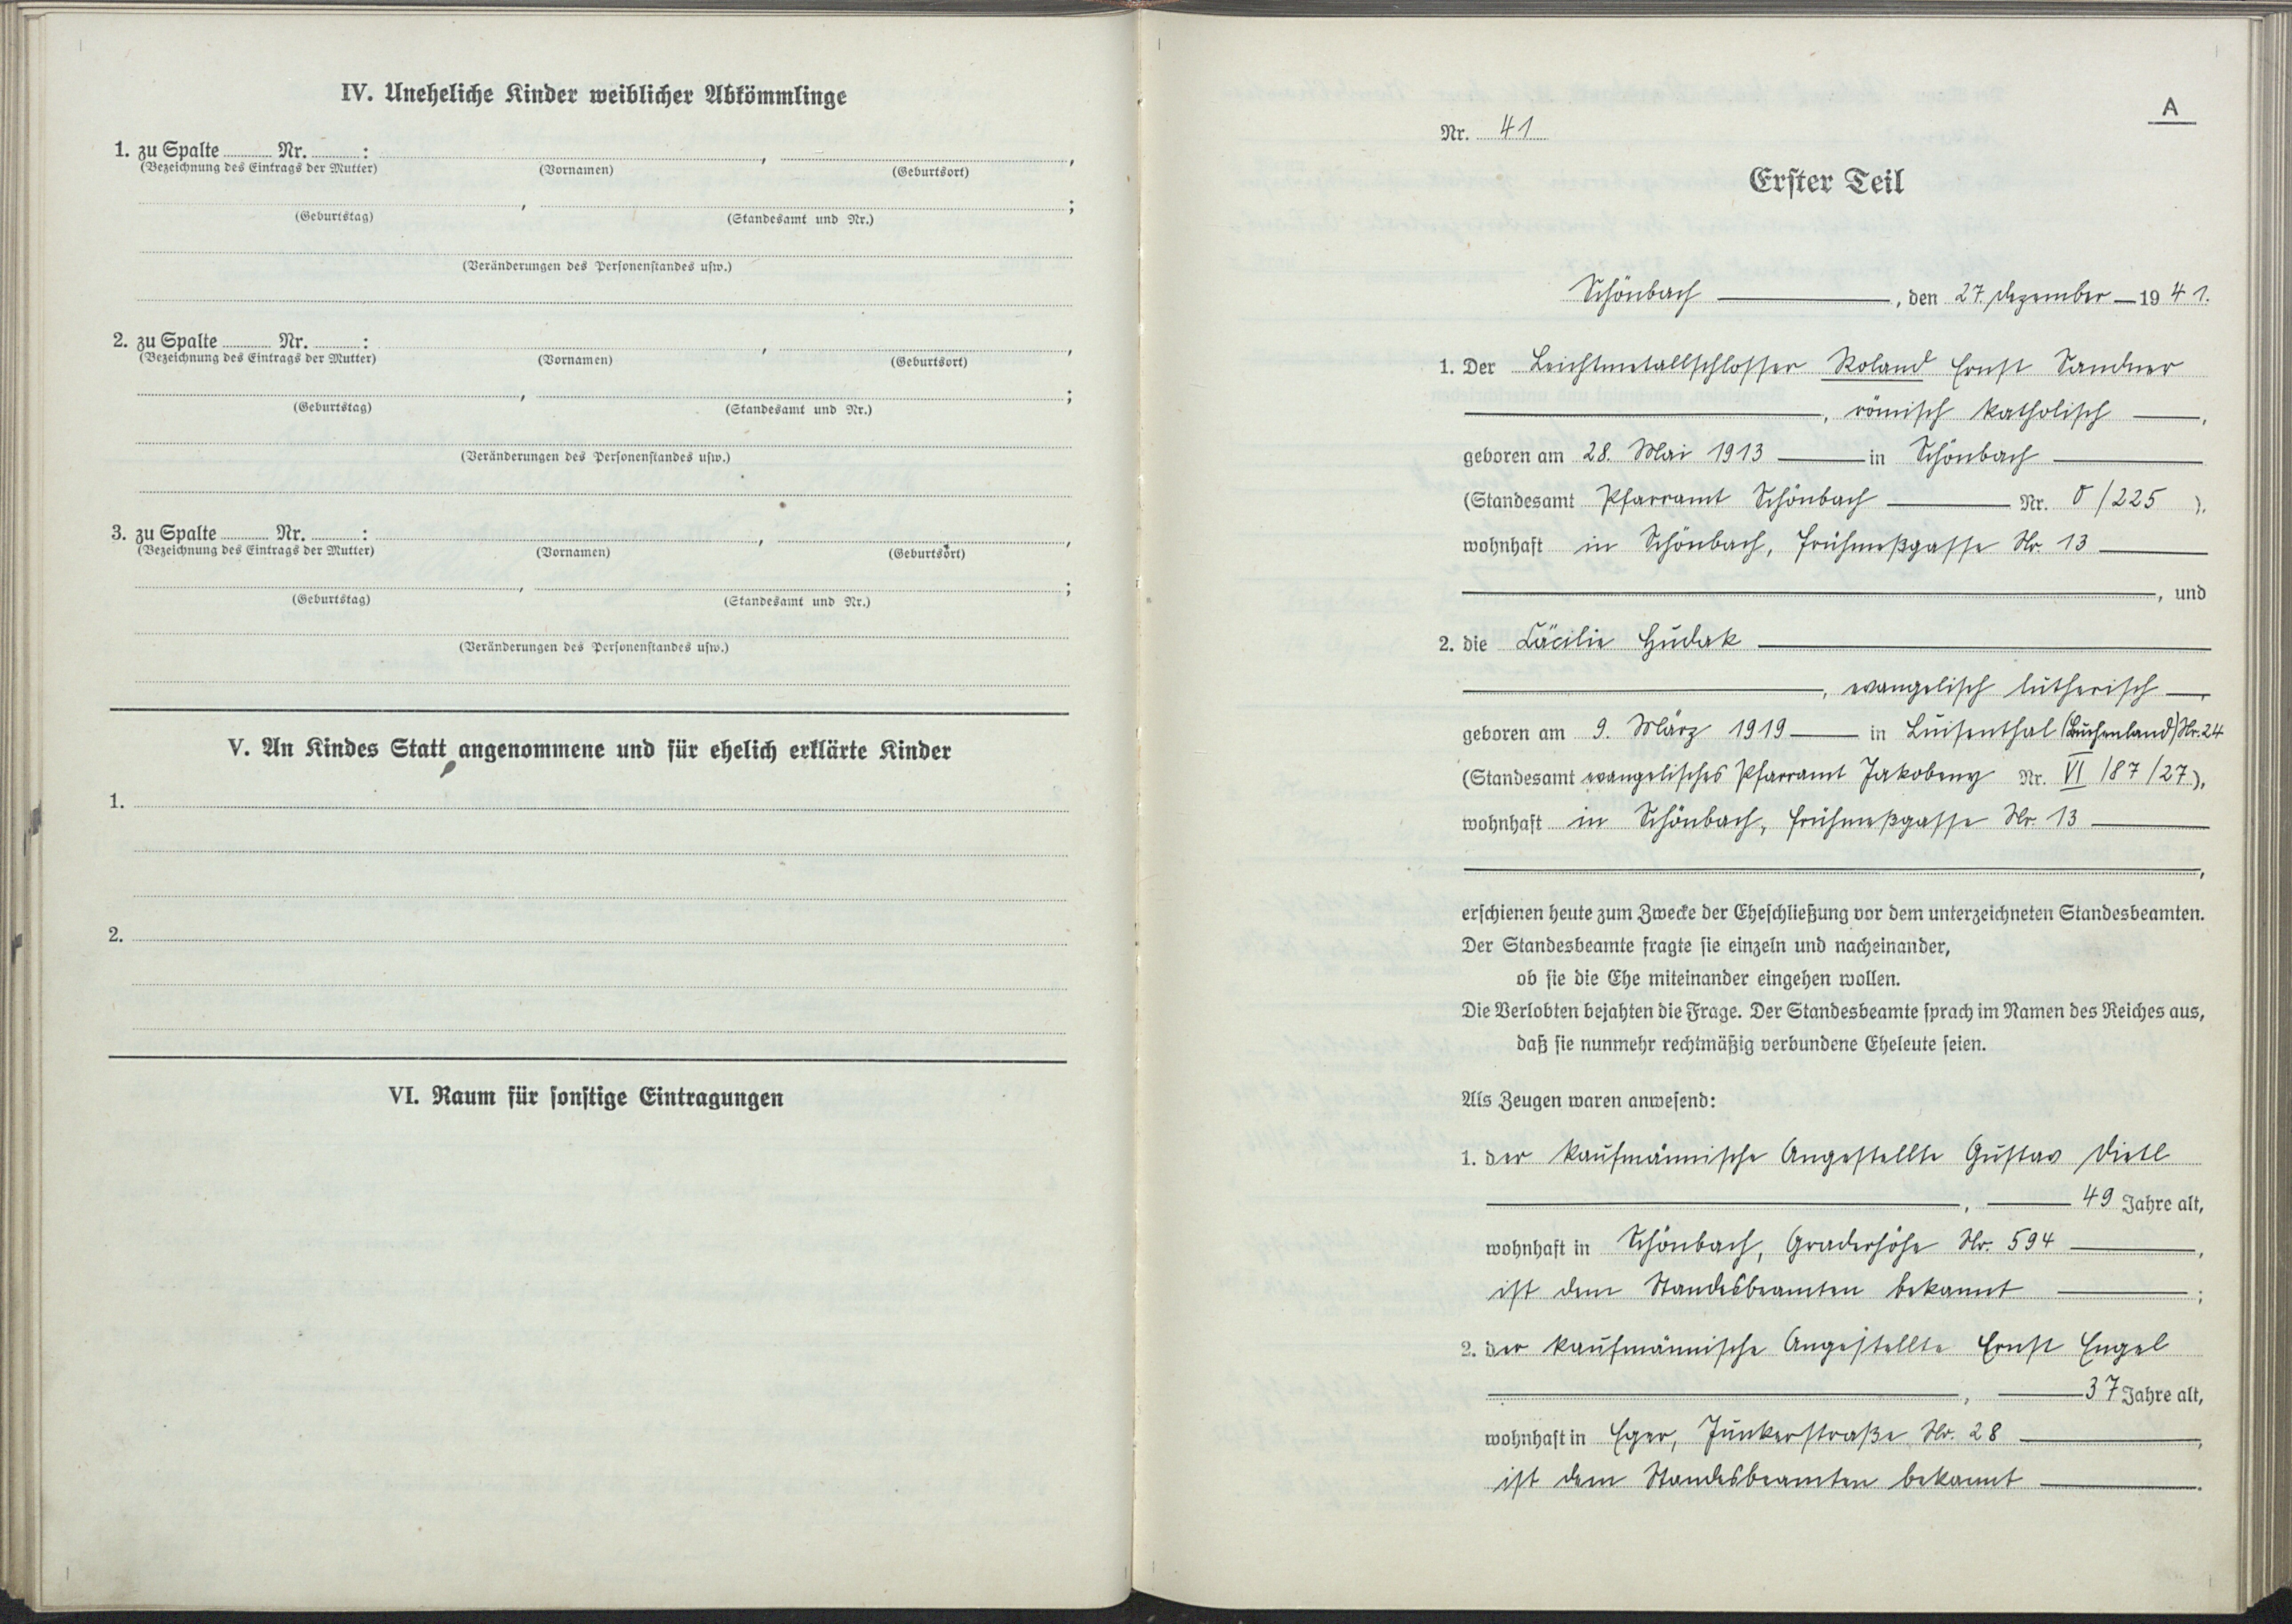 IV. Uneheliche Kinder weiblicher Abkömmlinge
1. zu Spalte Nr. : , ,
(Bezeichnung des Eintrags der Mutter) (Vornamen) (Geburtsort)
, ;
(Geburtstag) (Standesamt und Nr.)
(Veränderungen des Personenstandes usw.)
2. zu Spalte Nr. : , ,
(Bezeichnung des Eintrags der Mutter) (Vornamen) (Geburtsort)
, ;
(Geburtstag) (Standesamt und Nr.)
(Veränderungen des Personenstandes usw.)
3. zu Spalte Nr. : , ,
(Bezeichnung des Eintrags der Mutter) (Vornamen) (Geburtsort)
, ;
(Geburtstag) (Standesamt und Nr.)
(Veränderungen des Personenstandes usw.)
V. An Kindes Statt angenommene und für ehelich erklärte Kinder
1.
2.
VI. Raum für sonstige Eintragungen
A
Nr. 41
Erster Teil
Schönbach, den 27. Dezember 1941.
1. Der Leichtmetallschlosser Roland Ernst Sandner
, römisch katholisch,
geboren am 28. Mai 1913 in Schönbach
(Standesamt Pfarramt Schönbach Nr. O/225 ),
wohnhaft in Schönbach, Frühmeßgasse Nr. 13
, und
2. die Cäcilie Hudak
, evangelisch lutherisch,
geboren am 9. März 1919 in Luisenthal (Buchenland) Nr. 24
(Standesamt evangelisches Pfarramt Jakobeny Nr. VI /87/27),
wohnhaft in Schönbach, Frühmeßgasse Nr. 13
,
erschienen heute zum Zwecke der Eheschließung vor dem unterzeichneten Standesbeamten.
Der Standesbeamte fragte sie einzeln und nacheinander,
ob sie die Ehe miteinander eingehen wollen.
Die Verlobten bejahten die Frage. Der Standesbeamte sprach im Namen des Reiches aus,
daß sie nunmehr rechtmäßig verbundene Eheleute seien.
Als Zeugen waren anwesend:
1. der kaufmännische Angestellte Gustav Dietl
, 49 Jahre alt,
wohnhaft in Schönbach, Graderhöhe Nr. 594,
ist dem Standesbeamten bekannt;
2. der kaufmännische Angestellte Ernst Engel
, 37 Jahre alt,
wohnhaft in Eger, Junkerstraße Nr. 28,
ist dem Standesbeamten bekannt.